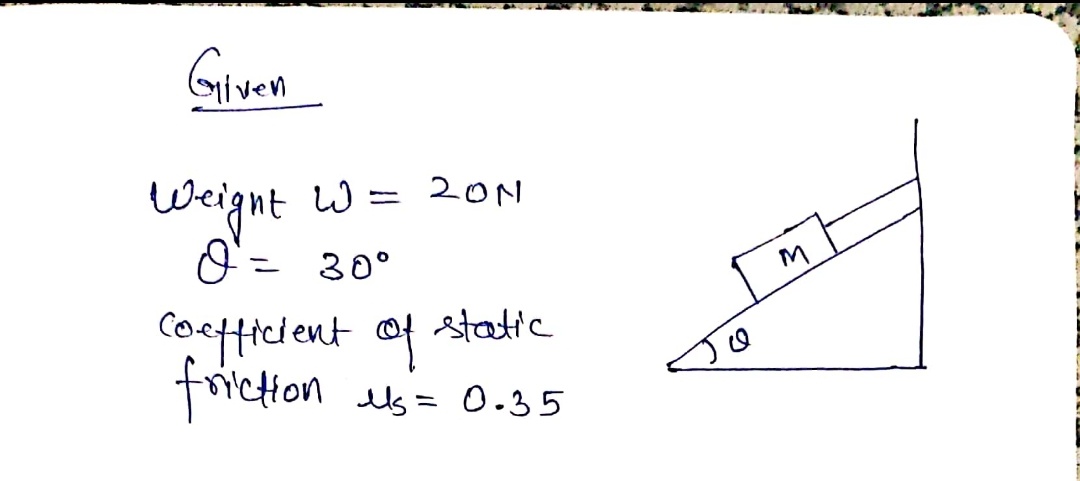 Given
Weight W = 20N
θ = 30°
Coefficient of static
friction μs = 0.35
M
θ